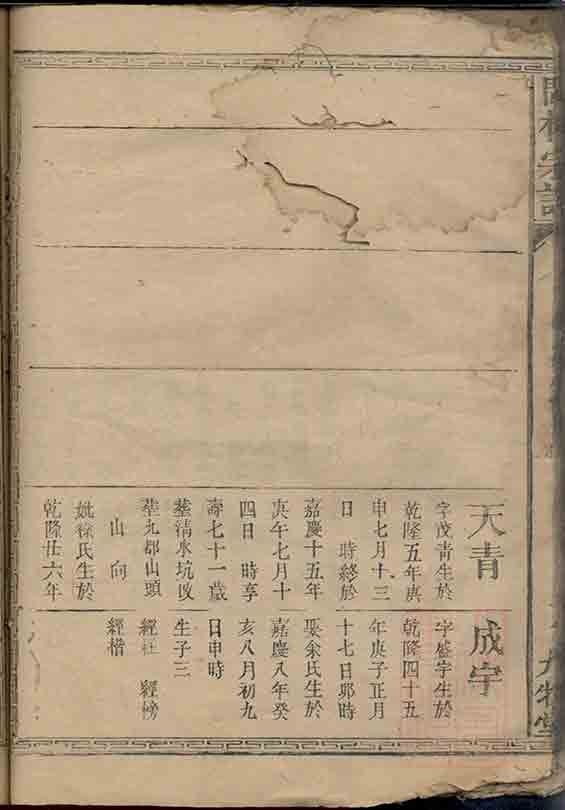 宗譜
九牧堂
天青
字茂青生於
乾隆五年庚
申七月十三
日 時終於
嘉慶十五年
庚午七月十
四日 時享
壽七十一歲
葬清水坑改
葬九都山頭
山 向
妣徐氏生於
乾隆廿六年
成宇
字盛宇生於
乾隆四十五
年庚子正月
十七日卯時
娶余氏生於
嘉慶八年癸
亥八月初九
日申時
生子三
經 經榜
經楷